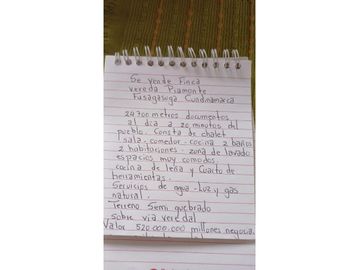 Se vende Finca
vereda Piamonte
Fusagasuga Cundinamarca
24700 metros documentos
al dia a 20 minutos del
pueblo. Consta de chalet
sala. comedor. cocina 2 baños
2 habitaciones. zona de lavado
espacios muy comodos
cocina de leña y Cuarto de
herramientas.
Servicios de agua - Luz y gas
natural.
Terreno Semi quebrado
sobre via veredal
Valor 520.000.000 millones negocia.